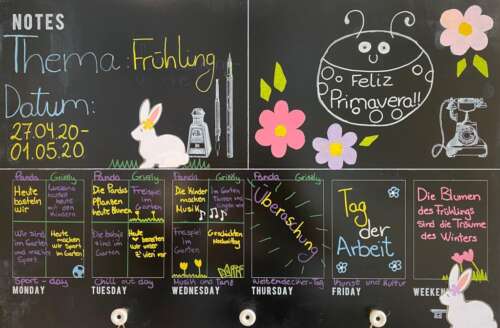 NOTES
Thema: Frühling
Datum:
27.04.20-
01.05.20
Feliz
Primavera!!
Panda Grizzly
Heute
basteln
wir
heute
mit den
Kindern
Wir sind
im Garten
und machen
Sport
Heute
machen
wir Sport
im Garten
Sport-day
MONDAY
Panda Grizzly
Die Pandas
Pflanzen
heute Blumen
Freispiel
im
Garten
Die babys
sind im
Garten
Heute
wir
Chill out day
TUESDAY
Panda Grizzly
Die Kinder
machen
Musik
im Garten
Freispiel
im
Garten
Geschichten
Nachmittag
Musik und Tanz
WEDNESDAY
Panda Grizzly
Überraschung
Weltendecker-Tag
THURSDAY
Tag
der
Arbeit
Kunst und Kultur
FRIDAY
Die Blumen
des Frühlings
sind die Träume
des Winters
WEEKEN